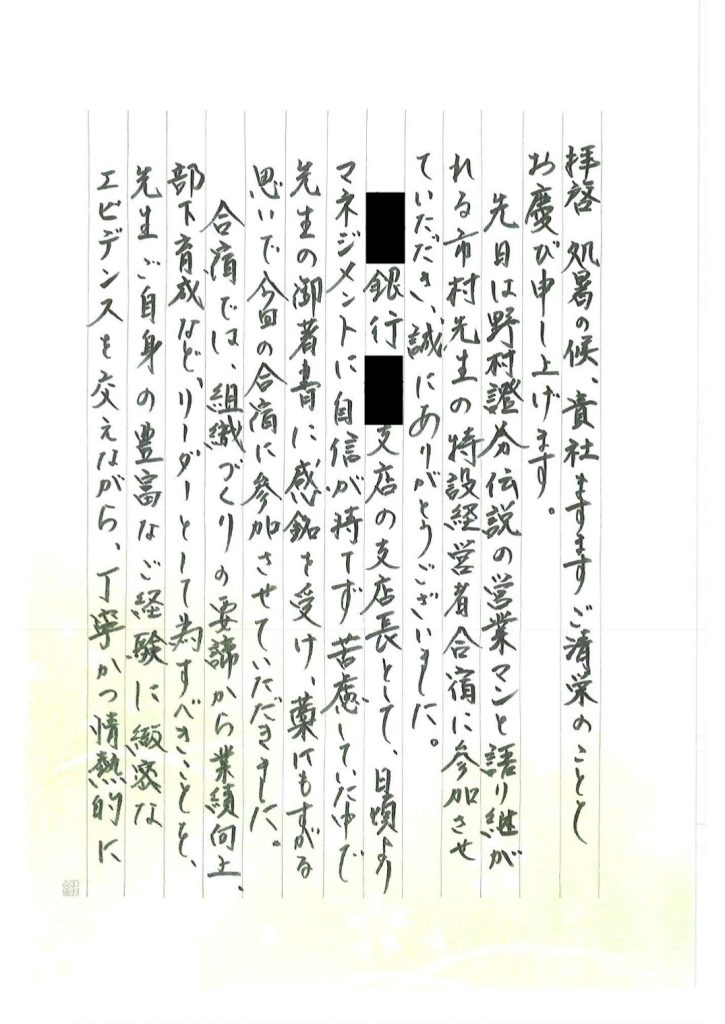 拝啓 処暑の候、貴社ますますご清栄のことと
お慶び申し上げます。
先日は野村證券伝説の営業マンと語り継が
れる市村先生の特設経営者合宿に参加させ
ていただき、誠にありがとうございました。
銀行 支店の支店長として、日頃より
マネジメントに自信が持てず苦慮していた中で
先生の御著書に感銘を受け、藁にもすがる
思いで今回の合宿に参加させていただきました。
合宿では、組織づくりの要諦から業績向上、
部下育成など、リーダーとして為すべきことを、
先生ご自身の豊富なご経験に緻密な
エビデンスを交えながら、丁寧かつ情熱的に